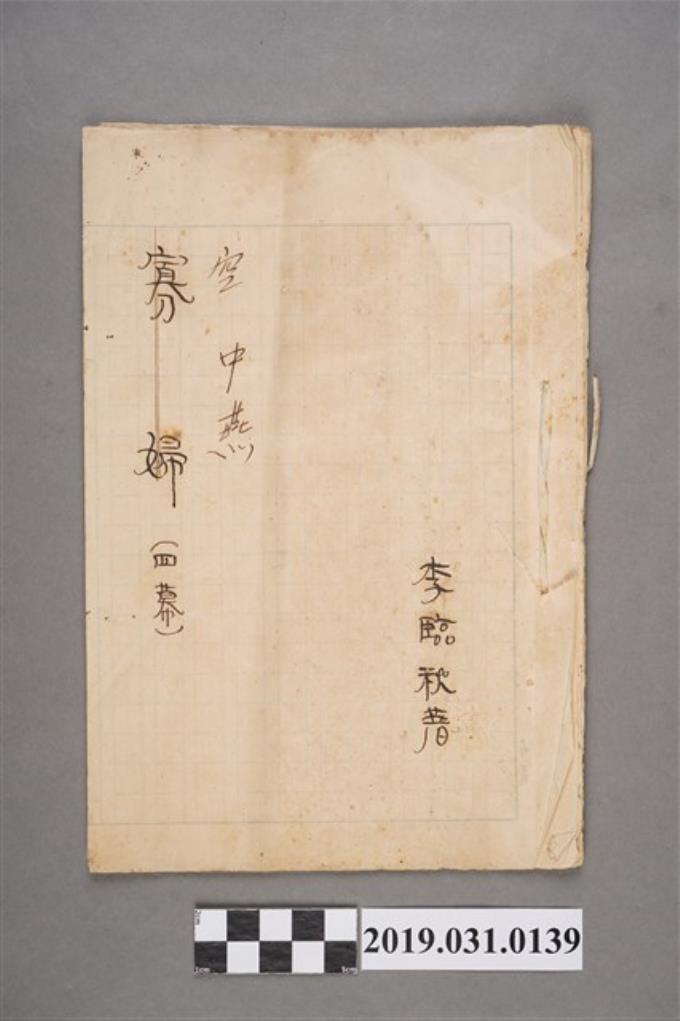 李臨秋著
空中燕
寡婦(四幕)
2cm
1cm
5cm
2019.031.0139